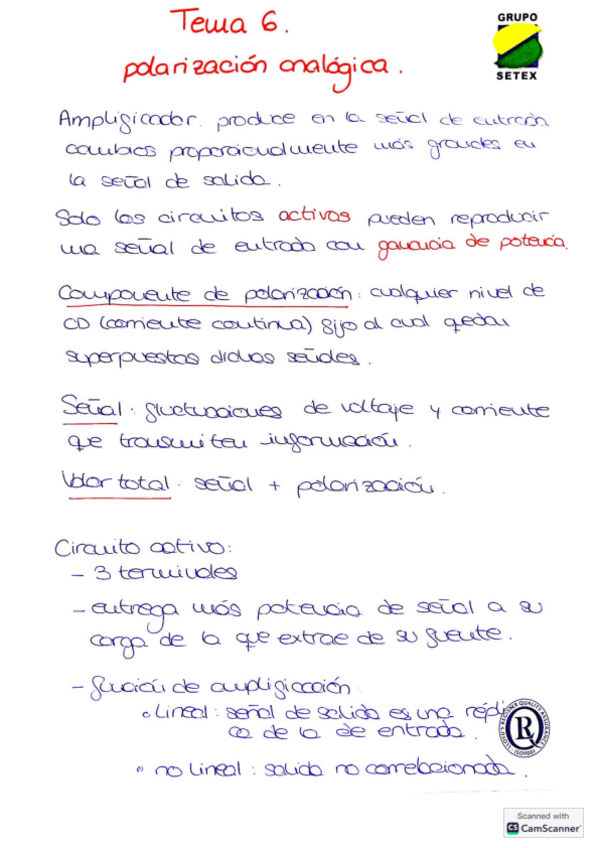 Tema 6.
GRUPO
SETEX
polarización analógica.
Amplificador. produce en la señal de entrada
cambios proporcionalmente más grandes en
la señal de salida.
Solo los circuitos activos pueden reproducir
una señal de entrada con ganancia de potencia.
Componente de polarización: cualquier nivel de
CD (corriente continua) fijo al cual quedan
superpuestas dichas señales.
Señal: fluctuaciones de voltaje y corriente
que transmiten información.
Valor total: señal + polarización.
Circuito activo:
- 3 terminales
- entrega más potencia de señal a su
carga de la que extrae de su fuente.
- función de amplificación:
• Lineal: señal de salida es una répli
ca de la de entrada.
• no lineal: salida no correlacionada.
LLOYD'S REGISTER QUALITY ASSURANCE
ISO9001
Scanned with
CS CamScanner